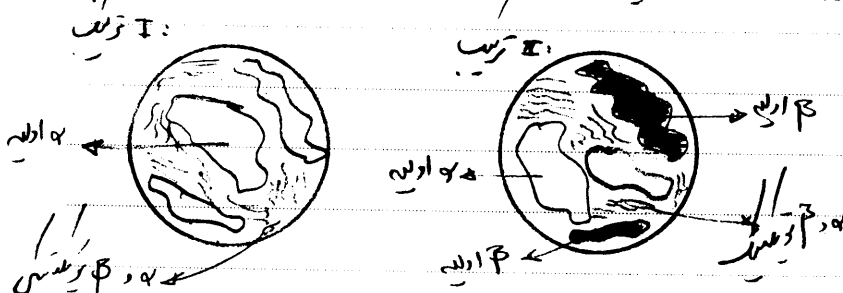 ترکیب I :
ترکیب II :
α اولیه
α و β یوتکتیکی
β اولیه
α اولیه
α و β یوتکتیک
β اولیه